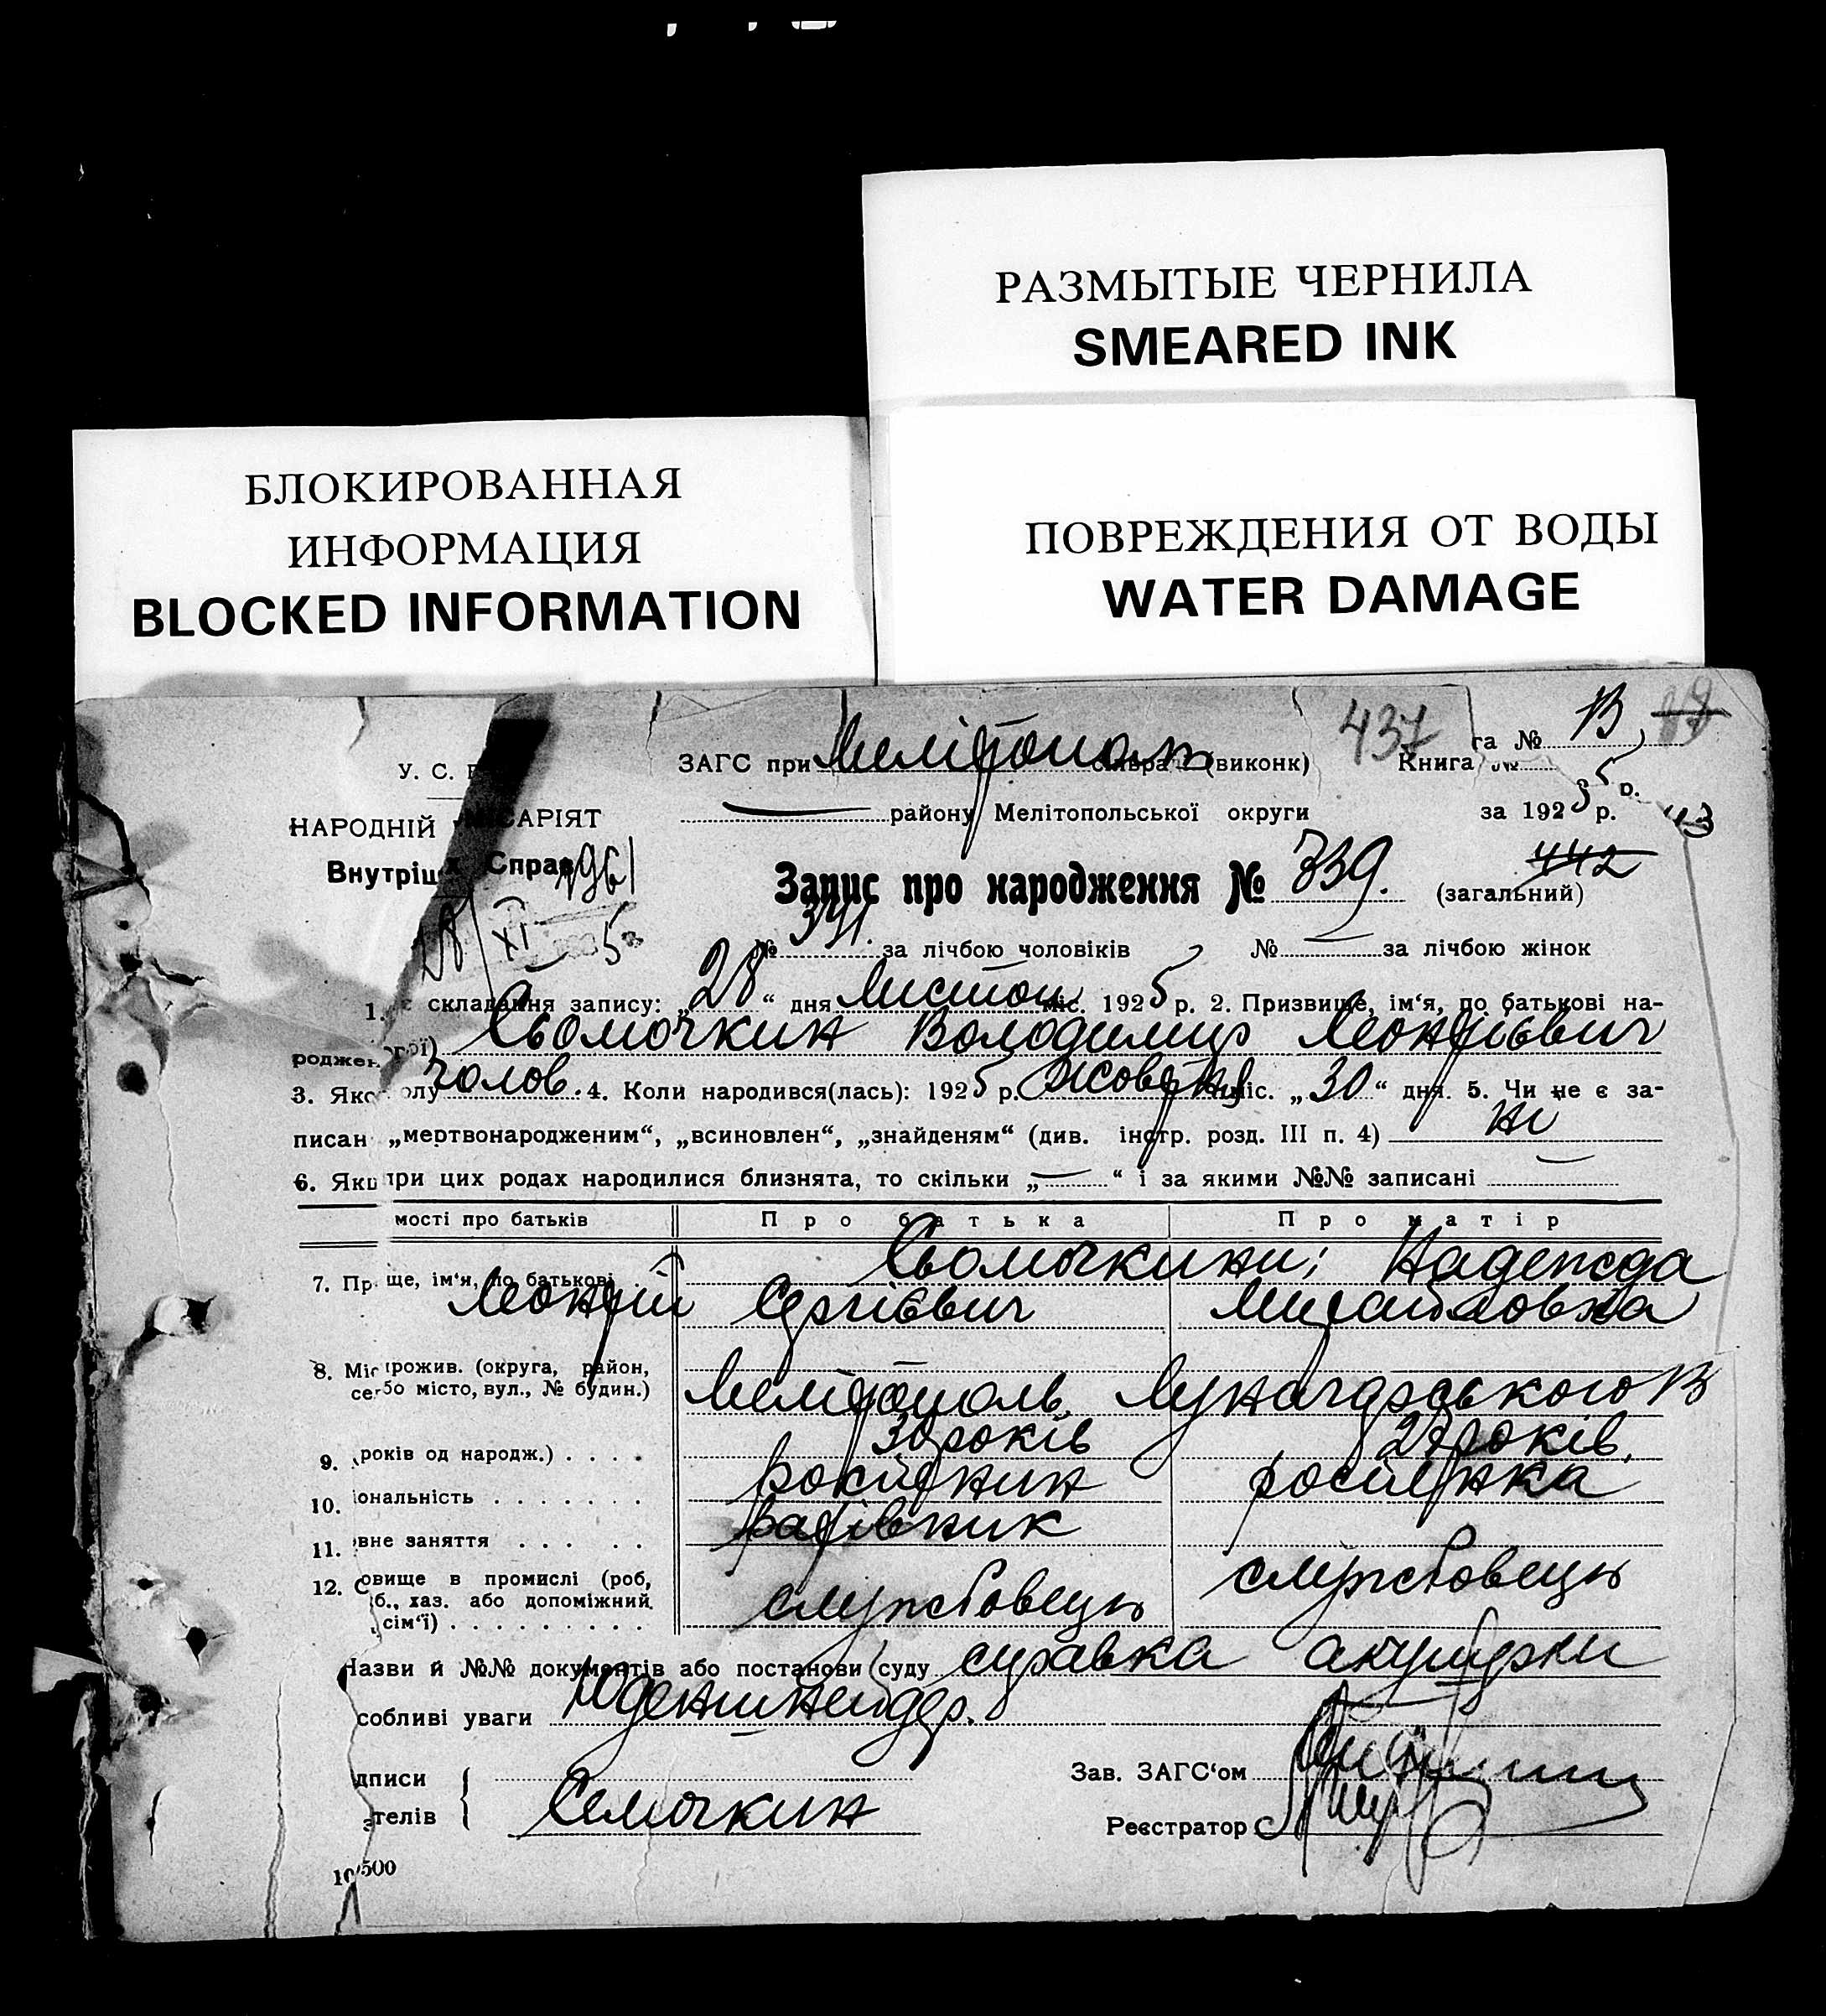 РАЗМЫТЫЕ ЧЕРНИЛА
SMEARED INK
БЛОКИРОВАННАЯ
ИНФОРМАЦИЯ
BLOCKED INFORMATION
ПОВРЕЖДЕНИЯ ОТ ВОДЫ
WATER DAMAGE
437 га № 13
У. С.
ЗАГС при Мелітополь (виконк) Книга №
5 р.
НАРОДНІЙ САРІЯТ
району Мелітопольської округи за 1925 р. 43
Внутріш Справ
Запис про народження № 739. (загальний) 442
28/XI 5
№ 391. за лічбою чоловіків № — за лічбою жінок
1. складання запису: „28“ дня Листоп міс. 1925 р. 2. Призвище, ім‘я, по батькові на-
роджен ої) Сьомочкин Володимир Леонтієвич
3. Яко олу чолов. 4. Коли народився(лась): 1925 р. жовтня міс. „30“ дня. 5. Чи не є за-
писан „мертвонародженим“, „всиновлен“, „знайденям“ (див. інстр. розд. III п. 4) ні
6. Якщ при цих родах народилися близнята, то скільки „—“ і за якими №№ записані —
мості про батьків Про батька Про матір
7. Пр ще, ім‘я, по батькові Сьомочкини; Надежда
Леонтій Сергієвич Михайловна
8. Міс прожив. (округа, район,
се бо місто, вул., № будин.) Мелітополь, Луначарського 13
9. років од народж.) 30 років 29 років.
10. іональність росіянин росіянка
11. вне заняття
12. С овище в промислі (роб,
б., хаз. або допоміжний службовець службовець
сім‘ї)
Назви й №№ документів або постанови суду справка акушерки
собливі уваги
дписи Зав. ЗАГС‘ом
телів Семочкин Реєстратор
10/500